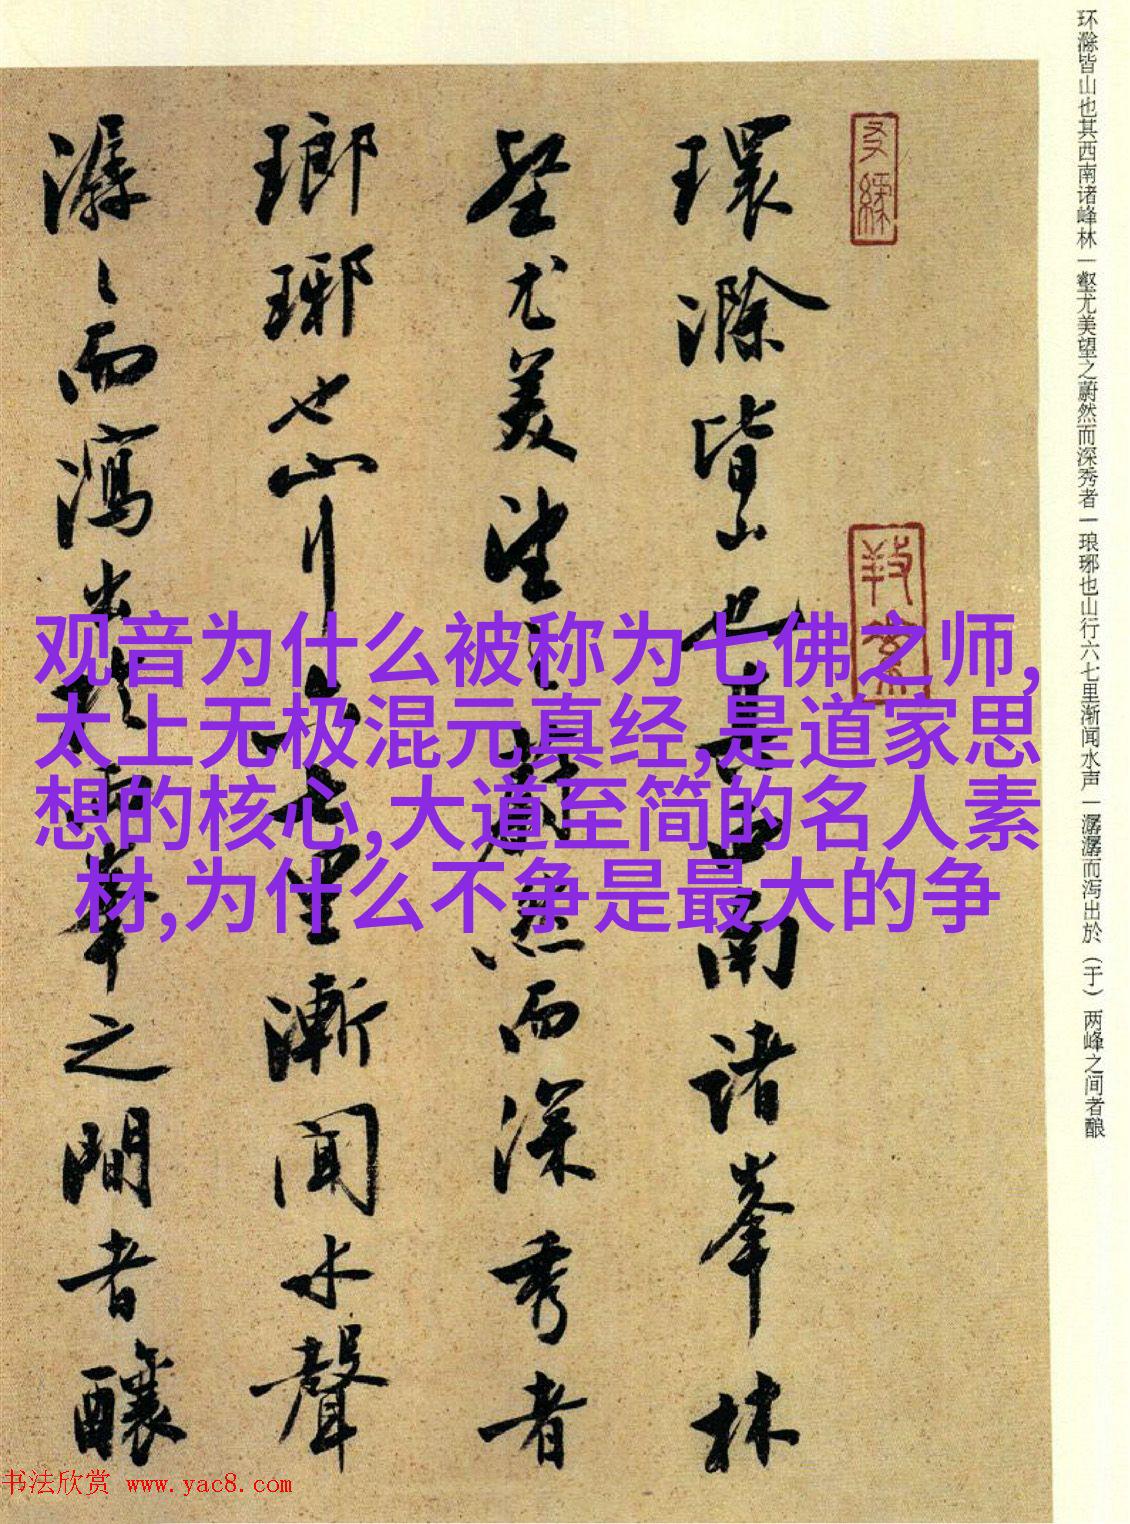 环滁皆山也其西南诸峰林一壑尤美望之蔚然而深秀者一琅琊也山行六七里渐闻水声一潺潺而泻出於(于)两峰之间者酿
環滁皆山也其西南諸峯林
壑尤美望之蔚然而深秀者
瑯琊也山行六七里漸聞水聲
潺〻而瀉出於兩峯之間者釀
观音为什么被称为七佛之师,
太上无极混元真经,是道家思
想的核心,大道至简的名人素
材,为什么不争是最大的争
书法欣赏 www.yac8.com